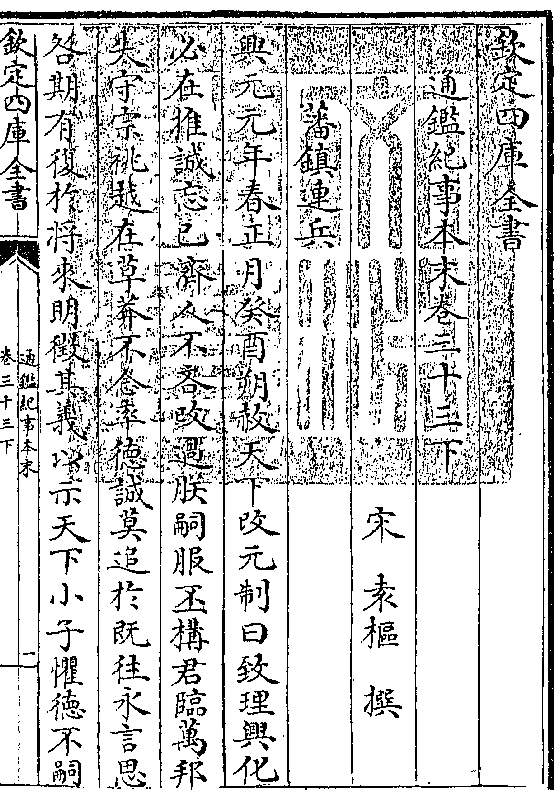 欽定四庫全書
通鑑紀事本末卷三十三下
宋 袁樞 撰
藩鎮連兵
興元元年春正月癸酉朔赦天下改元制曰致理興化
必在推誠忘已濟人不吝改過朕嗣服丕構君臨萬邦
失守宗祧越在草莽不念率德誠莫追於既往永言思
咎期有復於將來明徵其義以示天下小子懼德不嗣
欽定四庫全書
通鑑紀事本末
卷三十三下